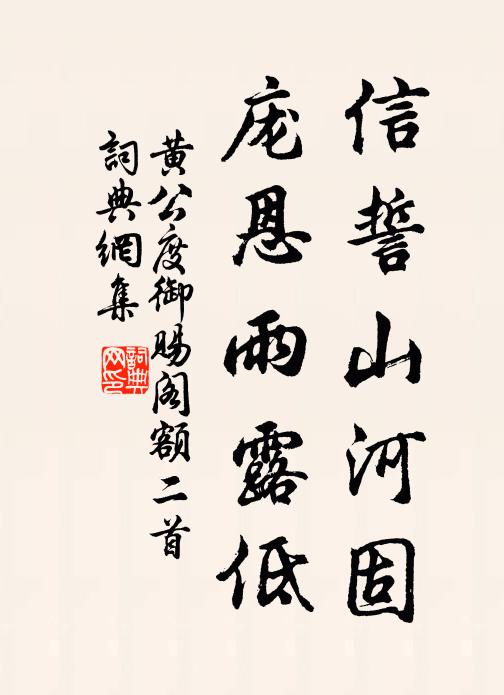 信誓山河固
庞恩雨露低
黄公度御賜阁額二首
詞典網集
詞典网印